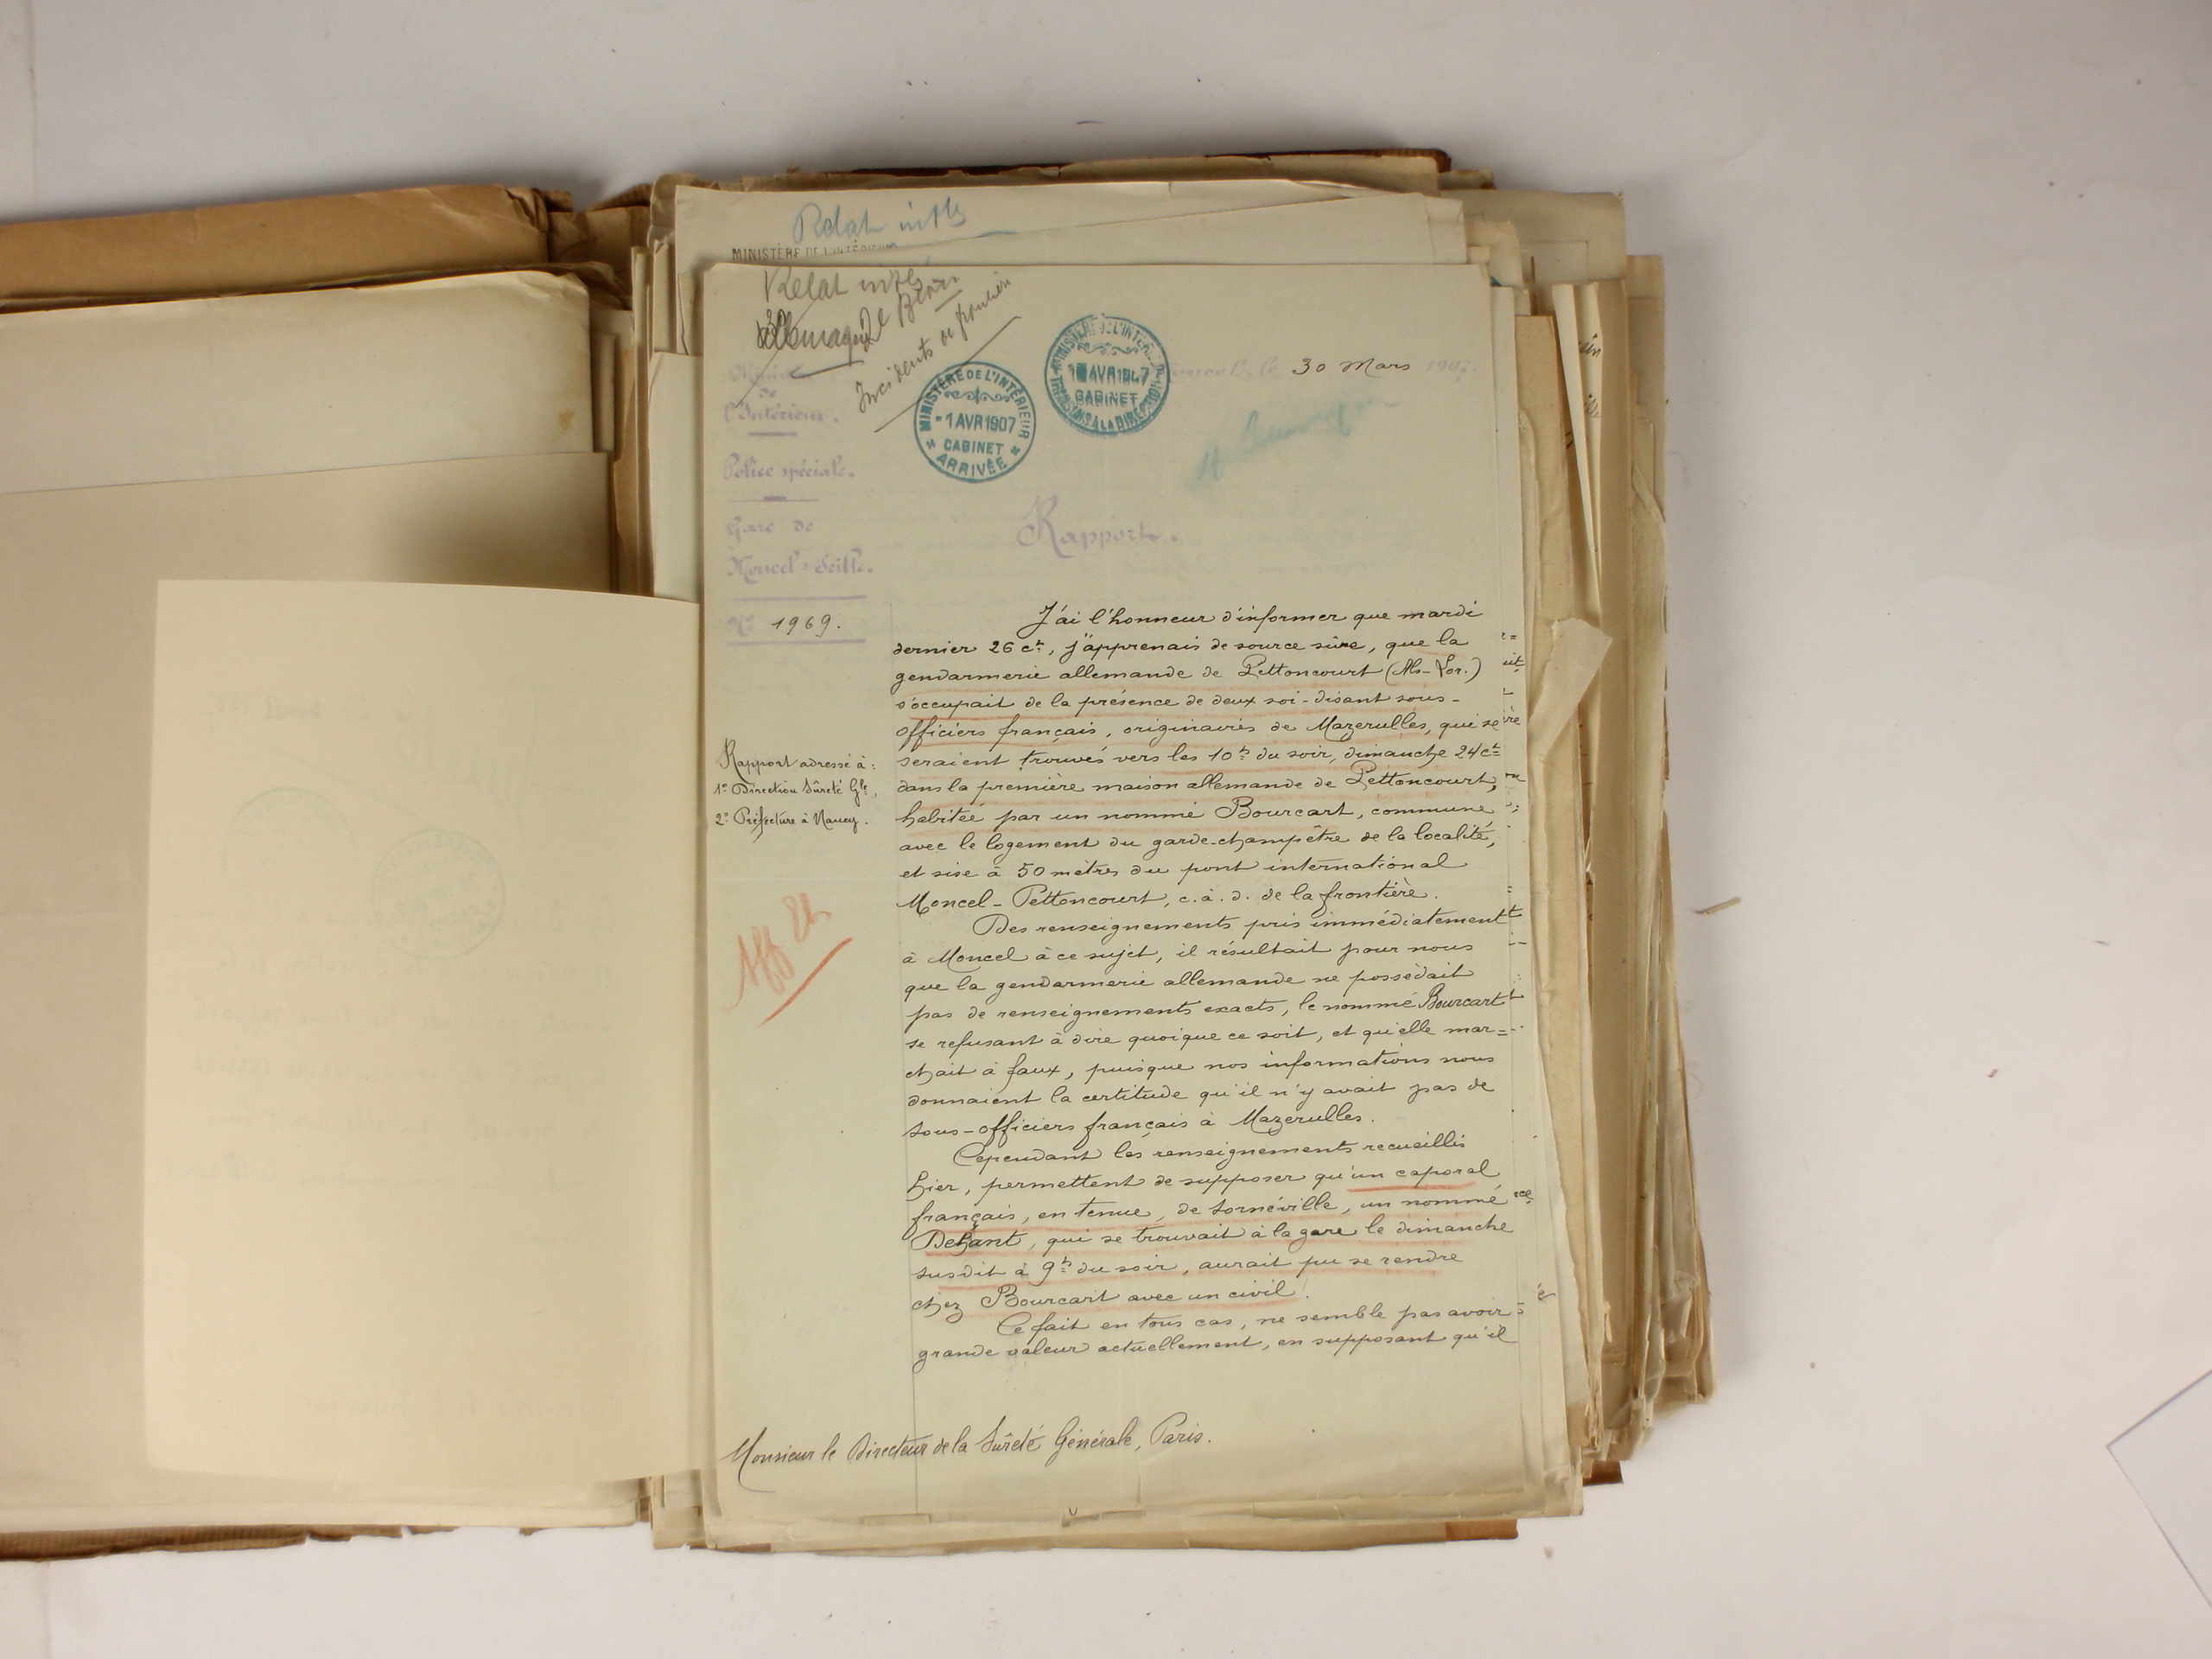 Relat intles
MINISTÈRE DE L'INTÉRIEUR
Relat intles
Allemagne
Incidents de frontière
Ministère
de
l'Intérieur.
Police spéciale.
Gare de
Moncel s/Seille.
N° 1969.
MINISTÈRE DE L'INTÉRIEUR
-1 AVR 1907
CABINET
ARRIVÉE
MINISTÈRE DE L'INTÉRIEUR
1 AVR 1907
CABINET
TRANSMIS À LA DIRECTION
Moncel, le 30 Mars 1907.
Rapport.
J'ai l'honneur d'informer que mardi
dernier 26 ct, j'apprenais de source sûre, que la
gendarmerie allemande de Pettoncourt (Als-Lor.)
s'occupait de la présence de deux soi-disant sous-
officiers français, originaires de Mazerulles, qui se
seraient trouvés vers les 10h du soir, dimanche 24 ct
dans la première maison allemande de Pettoncourt,
habitée par un nommé Bourcart, commune
avec le logement du garde-champêtre de la localité,
et sise à 50 mètres du pont international
Moncel-Pettoncourt, c.à.d. de la frontière.
Des renseignements pris immédiatement
à Moncel à ce sujet, il résultait pour nous
que la gendarmerie allemande ne possédait
pas de renseignements exacts, le nommé Bourcart
se refusant à dire quoique ce soit, et qu'elle mar=
chait à faux, puisque nos informations nous
donnaient la certitude qu'il n'y avait pas de
sous-officiers français à Mazerulles.
Cependant les renseignements recueillis
hier, permettent de supposer qu'un caporal
français, en tenue, de Sornéville, un nommé
Dehant, qui se trouvait à la gare le dimanche
susdit à 9h du soir, aurait pu se rendre
chez Bourcart avec un civil.
Ce fait en tous cas, ne semble pas avoir
grande valeur actuellement, en supposant qu'il
Rapport adressé à :
1° Direction Sûreté Gle,
2° Préfecture à Nancy.
Aff Et
Monsieur le Directeur de la Sûreté Générale, Paris.